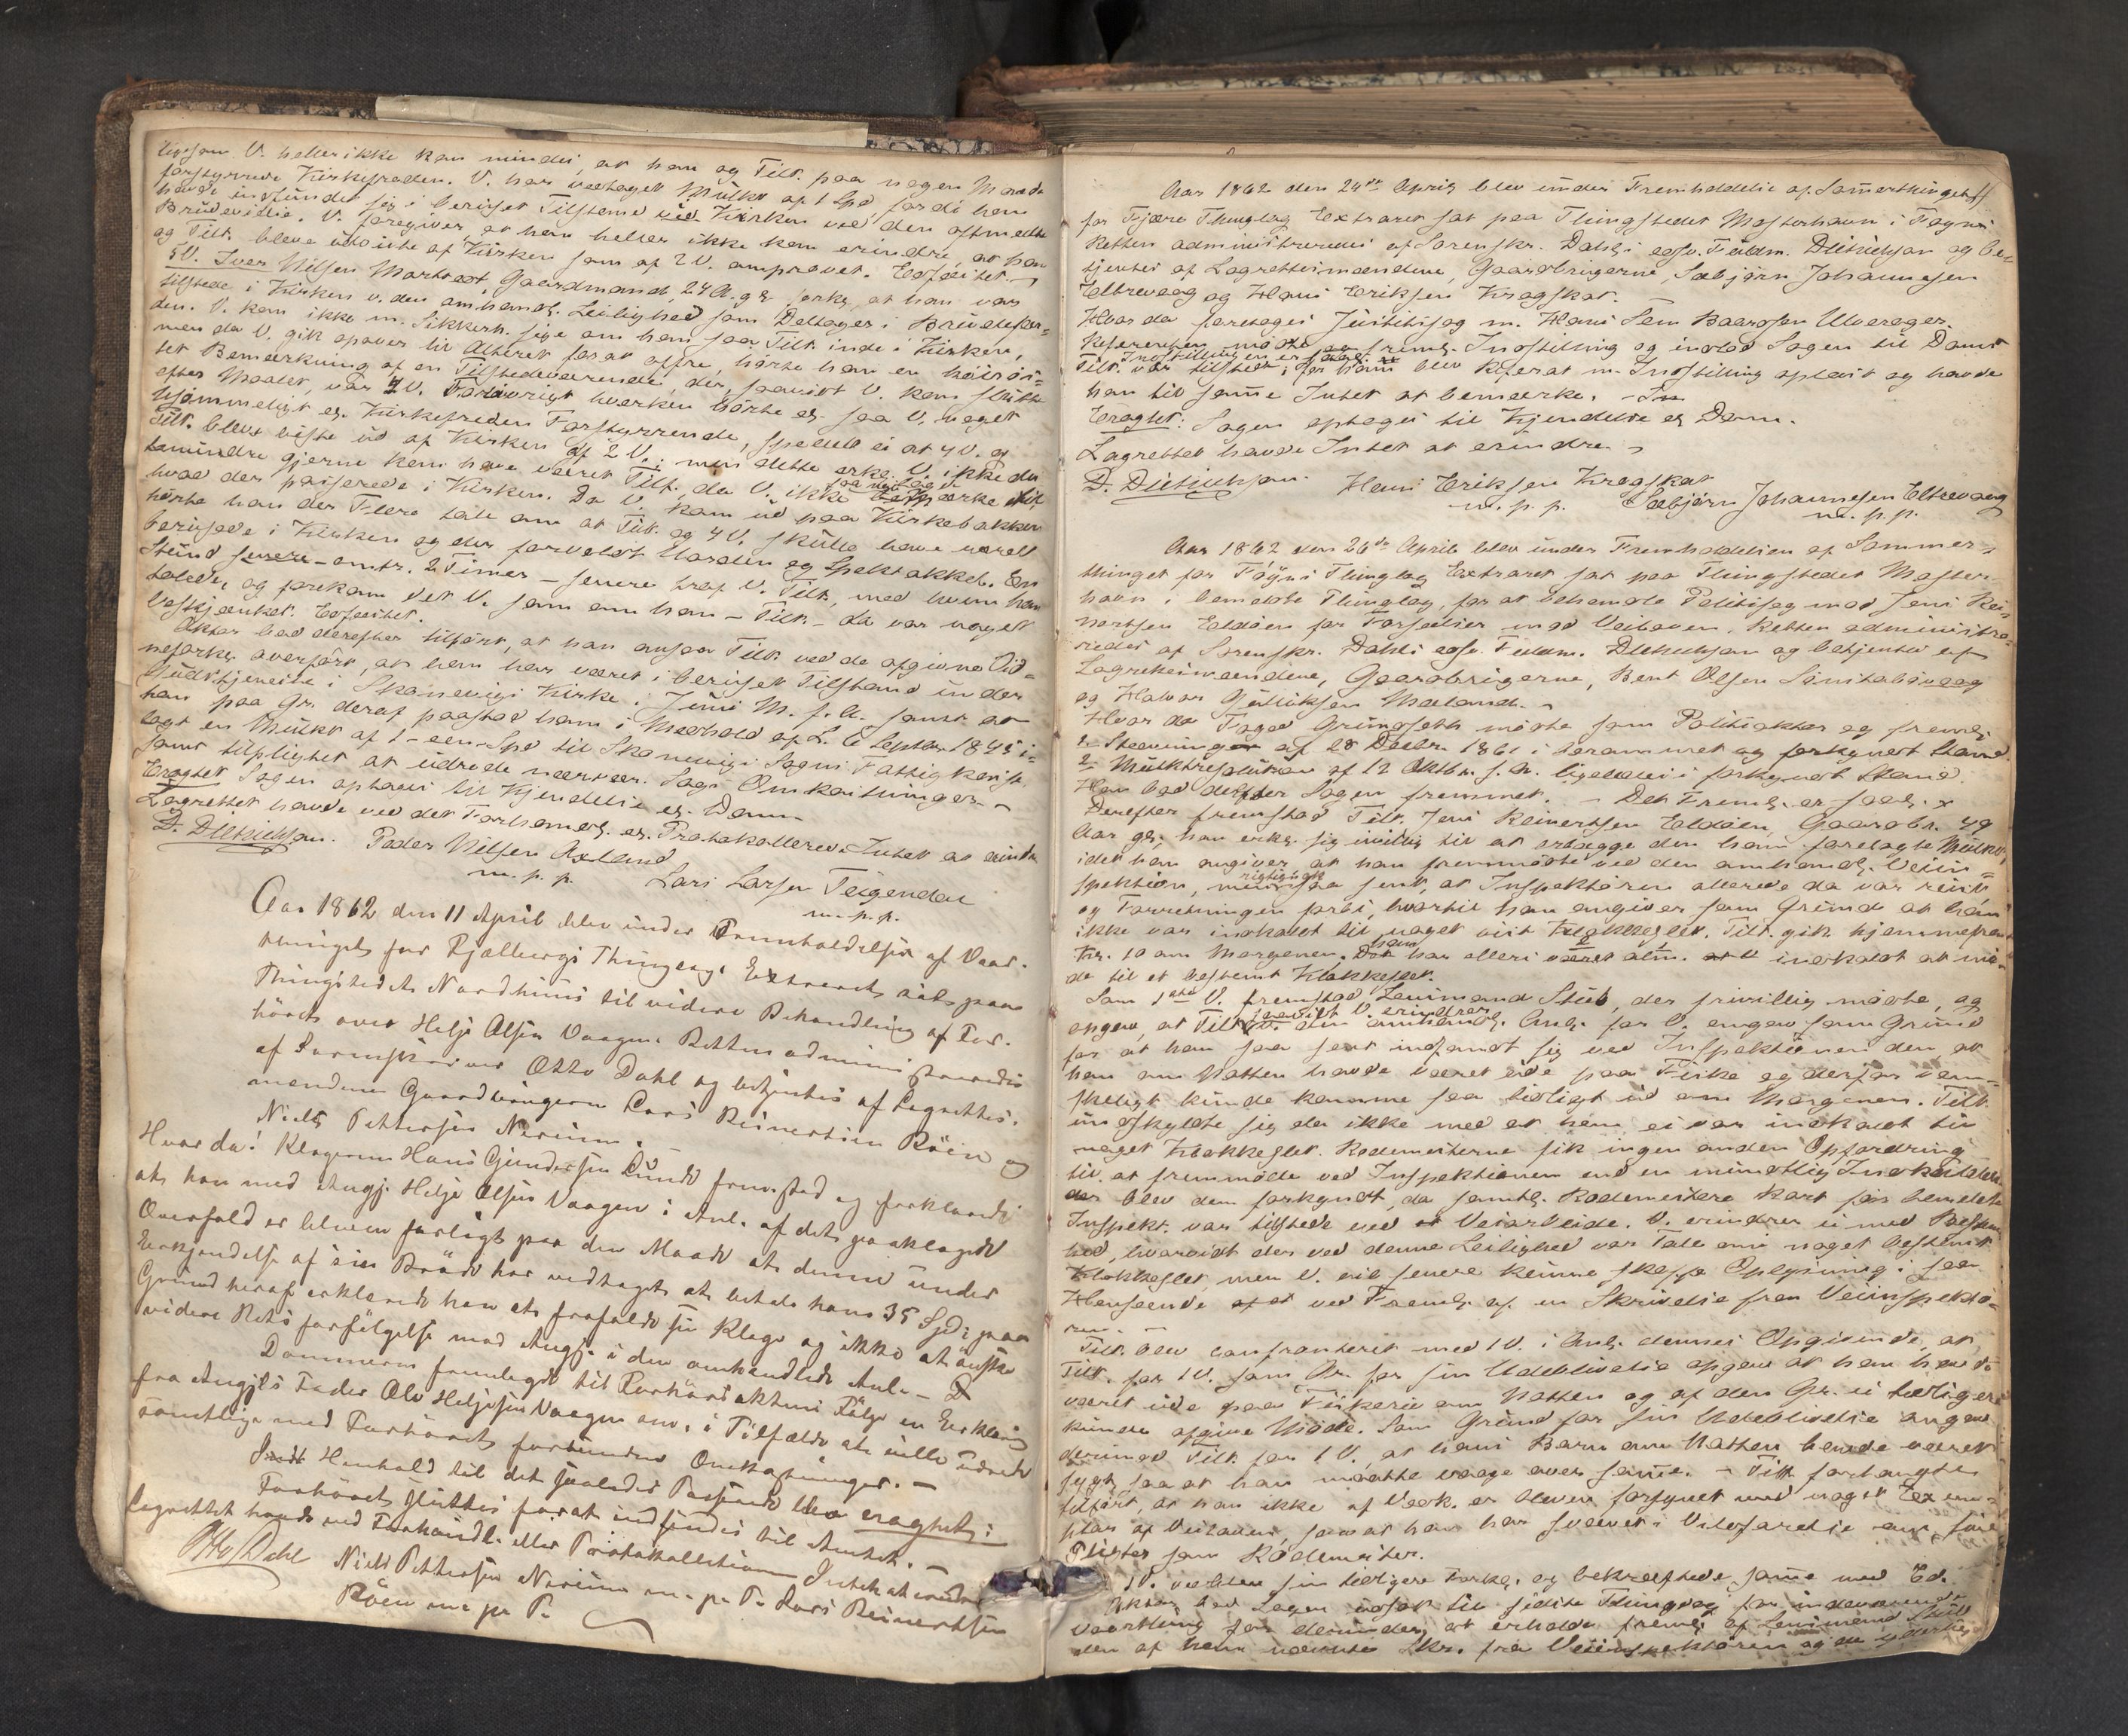 ligesom V. heller ikke kan mindes, at han og Tilt. paa nogen Maade
forstyrrede Kirkefreden. V. har vedtaget Mulkt af 1 Spd, fordi han
havde indfundet sig i beruset Tilstand ved Kirken ved den oftmeldte
Brudevielse. V. foregiver, at han heller ikke kan erindre, at han
og Tilt. bleve udviste af Kirken som af 2 V. omprovet. Edfæstet.
5 V. Iver Nilsen Gaardmand, 24 A. g. forkl. at han var
tilstede i Kirken v. den omhandl. Leilighed som Deltager i Brudefær-
den. V. kan ikke m. Sikkerh. sige om han saa Tilt. inde i Kirken,
men da V. gik opover til Alteret for at offre, hørte han en høirøs-
tet Bemærkning af en Tilstedeværende, der, saavidt V. kan slutte
efter Maalet, var 4 V. Forøvrigt hverken hørte el. saa V. noget
Kirkefreden Forstyrrende, specielt ei at 4 V. og
Tilt. blev viste ud af Kirken af 2 V.; men dette erkl. V. ikke des
tomindre gjerne kan have været Tilf., da V. ikke saa nøie lagde Mærke til,
hvad der passerede i Kirken. Da V. kom ud paa Kirkebakken
hørte han der Flere tale om at Tilt. og 4 V. skulle have været
berusede i Kirken og der forvoldt Uorden og Spektakkel. En
Stund senere – omtr. 2 Timer – senere traf V. Tilt., med hvem han
talede, og forekom det V. som om han – Tilt. – da var noget
beskjænket. Edfæstet.
Aktor bad derefter tilført, at han ansaa Tilt. ved de afgivne Vid-
neforkl. overført, at han har været i beruset Tilstand under
Gudstjeneste i Skonevigs Kirke i Juni M. f. A. samt at
han paa Gr. deraf paastod ham i Medhold af L. 6 Septbr. 1845 i-
lagt en Mulkt af 1 – een – Spd til Skonevigs Sogns Fattigkasse
samt tilpligtet at udrede nærvær. Sags Omkostninger.
Eragtet Sagen optages til Kjendelse el. Dom.
Lagrettet havde ved det Forhandl. el. Protokollerede Intet at erindre
D. Dietrichson. Peder Nilsen Axland
m. p. p. Lars Larsen Teigendal
m. p. p.
Aar 1862 den 11 April blev under Fremholdelsen af Vaar-
thinget for Fjelbergs Thinglag Extraret sat paa
Thingstedet Nordhuus til videre Behandling af For-
høret over Helje Olsen Vaagen. Retten administreredes
af Sorenskriver Otto Dahl og betjentes af Lagrettes-
mændene Gaardbrugerne Lars Reinertsen Røen og
Niels Pettersen Nerium.
Hvor da: Klageren Hans Gundersen Lunde fremstod og forklarede
at han med Angj. Helje Olsen Vaagen i Anl. af det paaklagede
Overfald er bleven forligt paa den Maade at denne under
Erkjendelse af sin Brøde har vedtaget at betale ham 35 Spd; paa
Grund heraf erklærede han at frafalde sin Klage og ikke at ønske
videre Rets forfølgelse mod Angj. i den omhandlede Anl. –
Dommeren fremlagde til Forhørsaktens Følge en Erklæring
fra Angjels Fader Ole Heljesen Vaagen om, i Tilfælde at ville udrede
samtlige med Forhøret forbundne Omkostninger. –
I Henhold til det saaledes Passerede blev eragtet:
Forhøret sluttes for at indsendes til Amtet. –
Lagrettet havde ved Forhandl. eller Protokollationen Intet at erindre
Otto Dahl Niels Pettersen Nerium m. p. P. Lars Reinertsen
Røen m. p. P.
Aar 1862 den 24de April blev under Fremholdelse af Sommerthinget
for Fjære Thinglag Extraret sat paa Thingstedet Mosterhavn i Føyns
Retten administreredes af Sorenskr. Dahls edsv. Fuldm. Dietrichson og be-
tjentes af Lagrettesmændene, Gaardbrugerne, Sæbjörn Johannesen
Eltrevaag og Hans Eriksen Krogskar.
Hvor da foretoges Justitssag m. Hans Sem Baardsen Alveroger.
Referenten mødte freml. Indstilling og indlod Sagen til Doms
Indstillingen er saal.
Tilt. var tilstede; for ham blev Referat m. Indstilling oplæst og havde
han til samme Intet at bemærke.
Eragtet: Sagen optages til Kjendelse el. Dom.
Lagrettet havde Intet at erindre
D. Dietrichson. Hans Eriksen Krogskar
m. p. p. Sæbjörn Johannesen Eltrevaag
m. p. p.
Aar 1862 den 26de April blev under Fremholdelsen af Sommer-
thinget for Föyns Thinglag Extraret sat paa Thingstedet Moster-
havn i bemeldte Thinglag, for at behandle Politisag mod Jens Rei-
nertsen Eldöen for Forseelser mod Veiloven. Retten administre-
redes af Sorenskr. Dahls edsv. Fuldm. Dietrichson og betjentes af
Lagrettesmændene, Gaardbrugerne, Bent Olsen
og Halvor Mæland.
Hvor da Foged Grungseth mødte som Politiaktor og fremls.
1. Stævning af 28 Decbr. 1861 i beramnet og forkyndt Stand
2. Mulktresolution af 12 Oktbr. s. A. ligeledes i forkyndt Stand.
Han bad derefter Sagen fremmet. – Det Freml. er saal.
Derefter fremstod Tilt. Jens Reinertsen Eldöen, Gaardbr. 49
Aar gl.; han erkl. sig uvillig til at erlægge den ham forelagte Mulkt,
idet han angiver, at han fremmødte ved den omhandl. Veiin-
spektion, men rigtignok saa sent, at Inspektören allerede da var reist
og Forretningen forbi, hvortil han angiver som Grund at han
ikke var indkaldt til noget vist Klokkeslet. Tilt. gik hjemmefra
Kl. 10 om Morgenen. han har ellers alm. indkaldt at mö-
de til et bestemt Klokkeslet.
Som 1ste V. fremstod Lensmand Stub, der frivillig mødte, og
opgav, at Tilt. saavidt V. erindrer, den omhandl. Anl. for V. angav som Grund
for at han saa sent indfandt sig ved Inspektionen den, at
han om Natten havde været ude paa Fiske og derfor van-
skeligt kunde komme saa tidligt ud om Morgenen. Tilt.
undskyldte sig da ikke med at han ei var indkaldt til
noget Klokkeslet. Rodemesterne fik ingen anden Opfordring
til at fremmøde ved Inspektionen end en mundtlig Indkaldelse,
der blev dem forkyndt, da samtl. Rodemestere kort før bemeldte
Inspekt. var tilstede ved Veiarbeide. V. erindrer ei med Bestemt
hed, hvorvidt der ved denne Leilighed var Tale om noget bestemt
Klokkeslet, men V. vil senere kunne skaffe Oplysning i saa
Henseende ved Freml. af en Skrivelse fra Veiinspektö-
ren.
Tilt. blev confronteret med 1 V. i Anl. dennes Opgivende, at
Tilt. for 1 V. som Gr. for sin Udeblivelse opgav at han havde
været ude paa Fiskerie om Natten og af den Gr. ei tidligere
kunde afgive Møde. Som Grund for sin Udeblivelse angav
derimod Tilt. for 1 V., at hans Barn om Natten havde været
sygt, saa at han maatte vaage over samme. – Tilt. forlangte
tilført, at han ikke af Vedk. er bleven forsynet med noget Exem-
plar af Veiloven, saa at han har svævet i Vildfarelse om sine
Pligter som Rodemester.
1 V. vedblev sin tidligere Forkl. og bekræftede samme med Ed.
Aktor bad Sagen udsat til sidste Thingdag for indeværende
Vaarthing for derunder at erholde freml. af Lensmand Stub
den af ham nævnte Skr. fra Veiinspektören og de yderlig